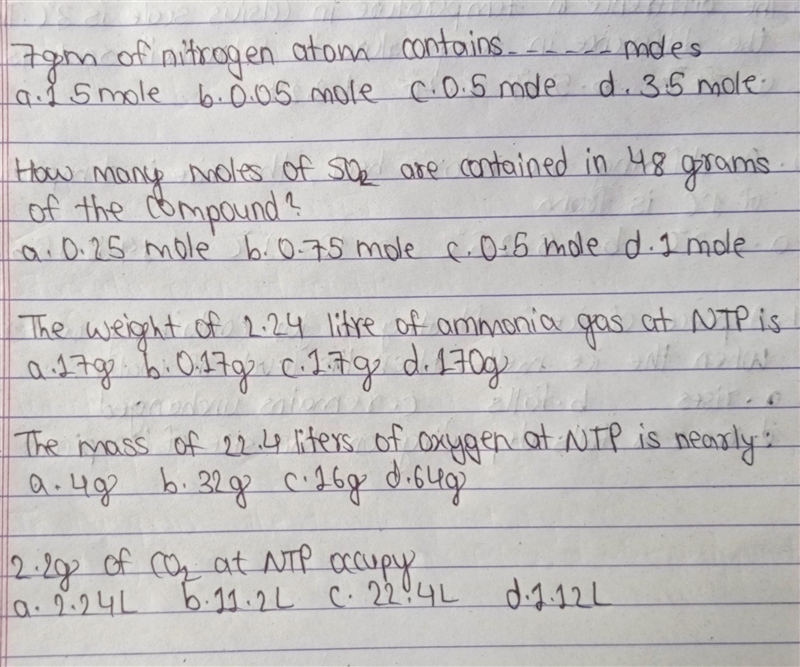 7gm of nitrogen atom contains------ moles
a.1 5mole b.0.05 mole c.0.5 mole d.3.5 mole.
How many moles of SO₂ are contained in 48 grams
of the compound?
a.0.25 mole b.0.75 mole c.0.5 mole d.1 mole
The weight of 2.24 litre of ammonia gas at NTP is
a.17g b.0.17g c.1.7g d.170g
The mass of 22.4 liters of oxygen at NTP is nearly:
a.4g b.32g c.16g d.64g
2.2g of CO₂ at NTP occupy
a.2.24L b.11.2L c.22.4L d.1.12L